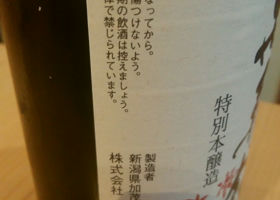 特別本醸造
なってから。
傷つけないよう。
期の飲酒は控えましょう。
律で禁じられています。
製造者
新潟県加茂
株式会社